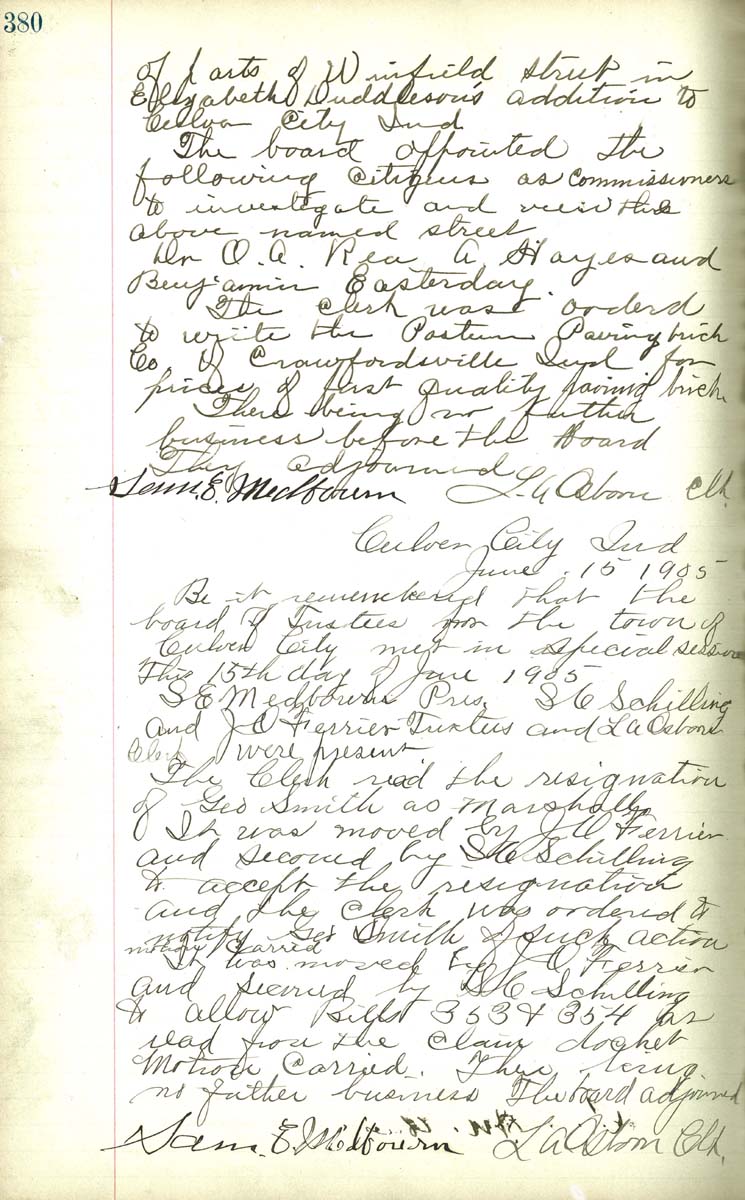 380
of parts of Winfield street in
Elizabeth Duddleson's addition to
Culver City Ind
The board appointed the
following Citizens as commissioners
to investigate and view the
above named street
Dr O. A. Rea A Hayes and
Benjamin Easterday.
The clerk was orderd
to write the Poston Paving brick
Co of Crawfordsville Ind for
prices of first quality paving brick
There being no further
business before the Board
They adjourned
Sam. E. Medbourn L. A Osborn Clk.
Culver City Ind
June 15 1905
Be it remembered that the
board of Trustees for the town of
Culver City met in special session
this 15th day of June 1905
S E Medbourn Pres. S C Schilling
and J O Ferrier Trustees and L A Osborn
Clerk were present
The Clerk read the resignation
of Geo Smith as Marshall
It was moved by J O Ferrier
and second by S C Schilling
to accept the resignation
and the clerk was ordered to
notify Geo Smith of such action
motion Carried
It was moved by J O Ferrier
and second by S C Schilling
to allow Bills 353 & 354 as
read from the claim docket
Motion Carried. There being
no futher business The board adjourned
Sam. E. Medbourn L A Osborn Clk.